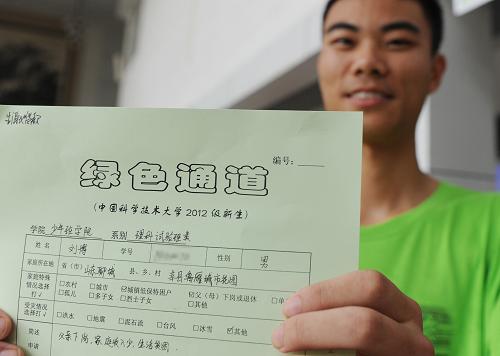 编号：
绿色通道
(中国科学技术大学2012级新生)
学院 少年班学院 系别 理科试验班类
姓名 刘博 学号 性别 男
家庭所在地 省（市）山东聊城 县、乡、村
家庭特殊情况选择打√ □农村 □城市 ☑城镇低保特困户 ☑父（母）下岗或退休 □单
□孤儿 □多子女 □烈士子女 □其他
受灾情况选择打√ □洪水 □地震 □泥石流 □台风 □冰雪 ☑其他
简述 父亲下岗，家庭收入少，生活贫困.
申请